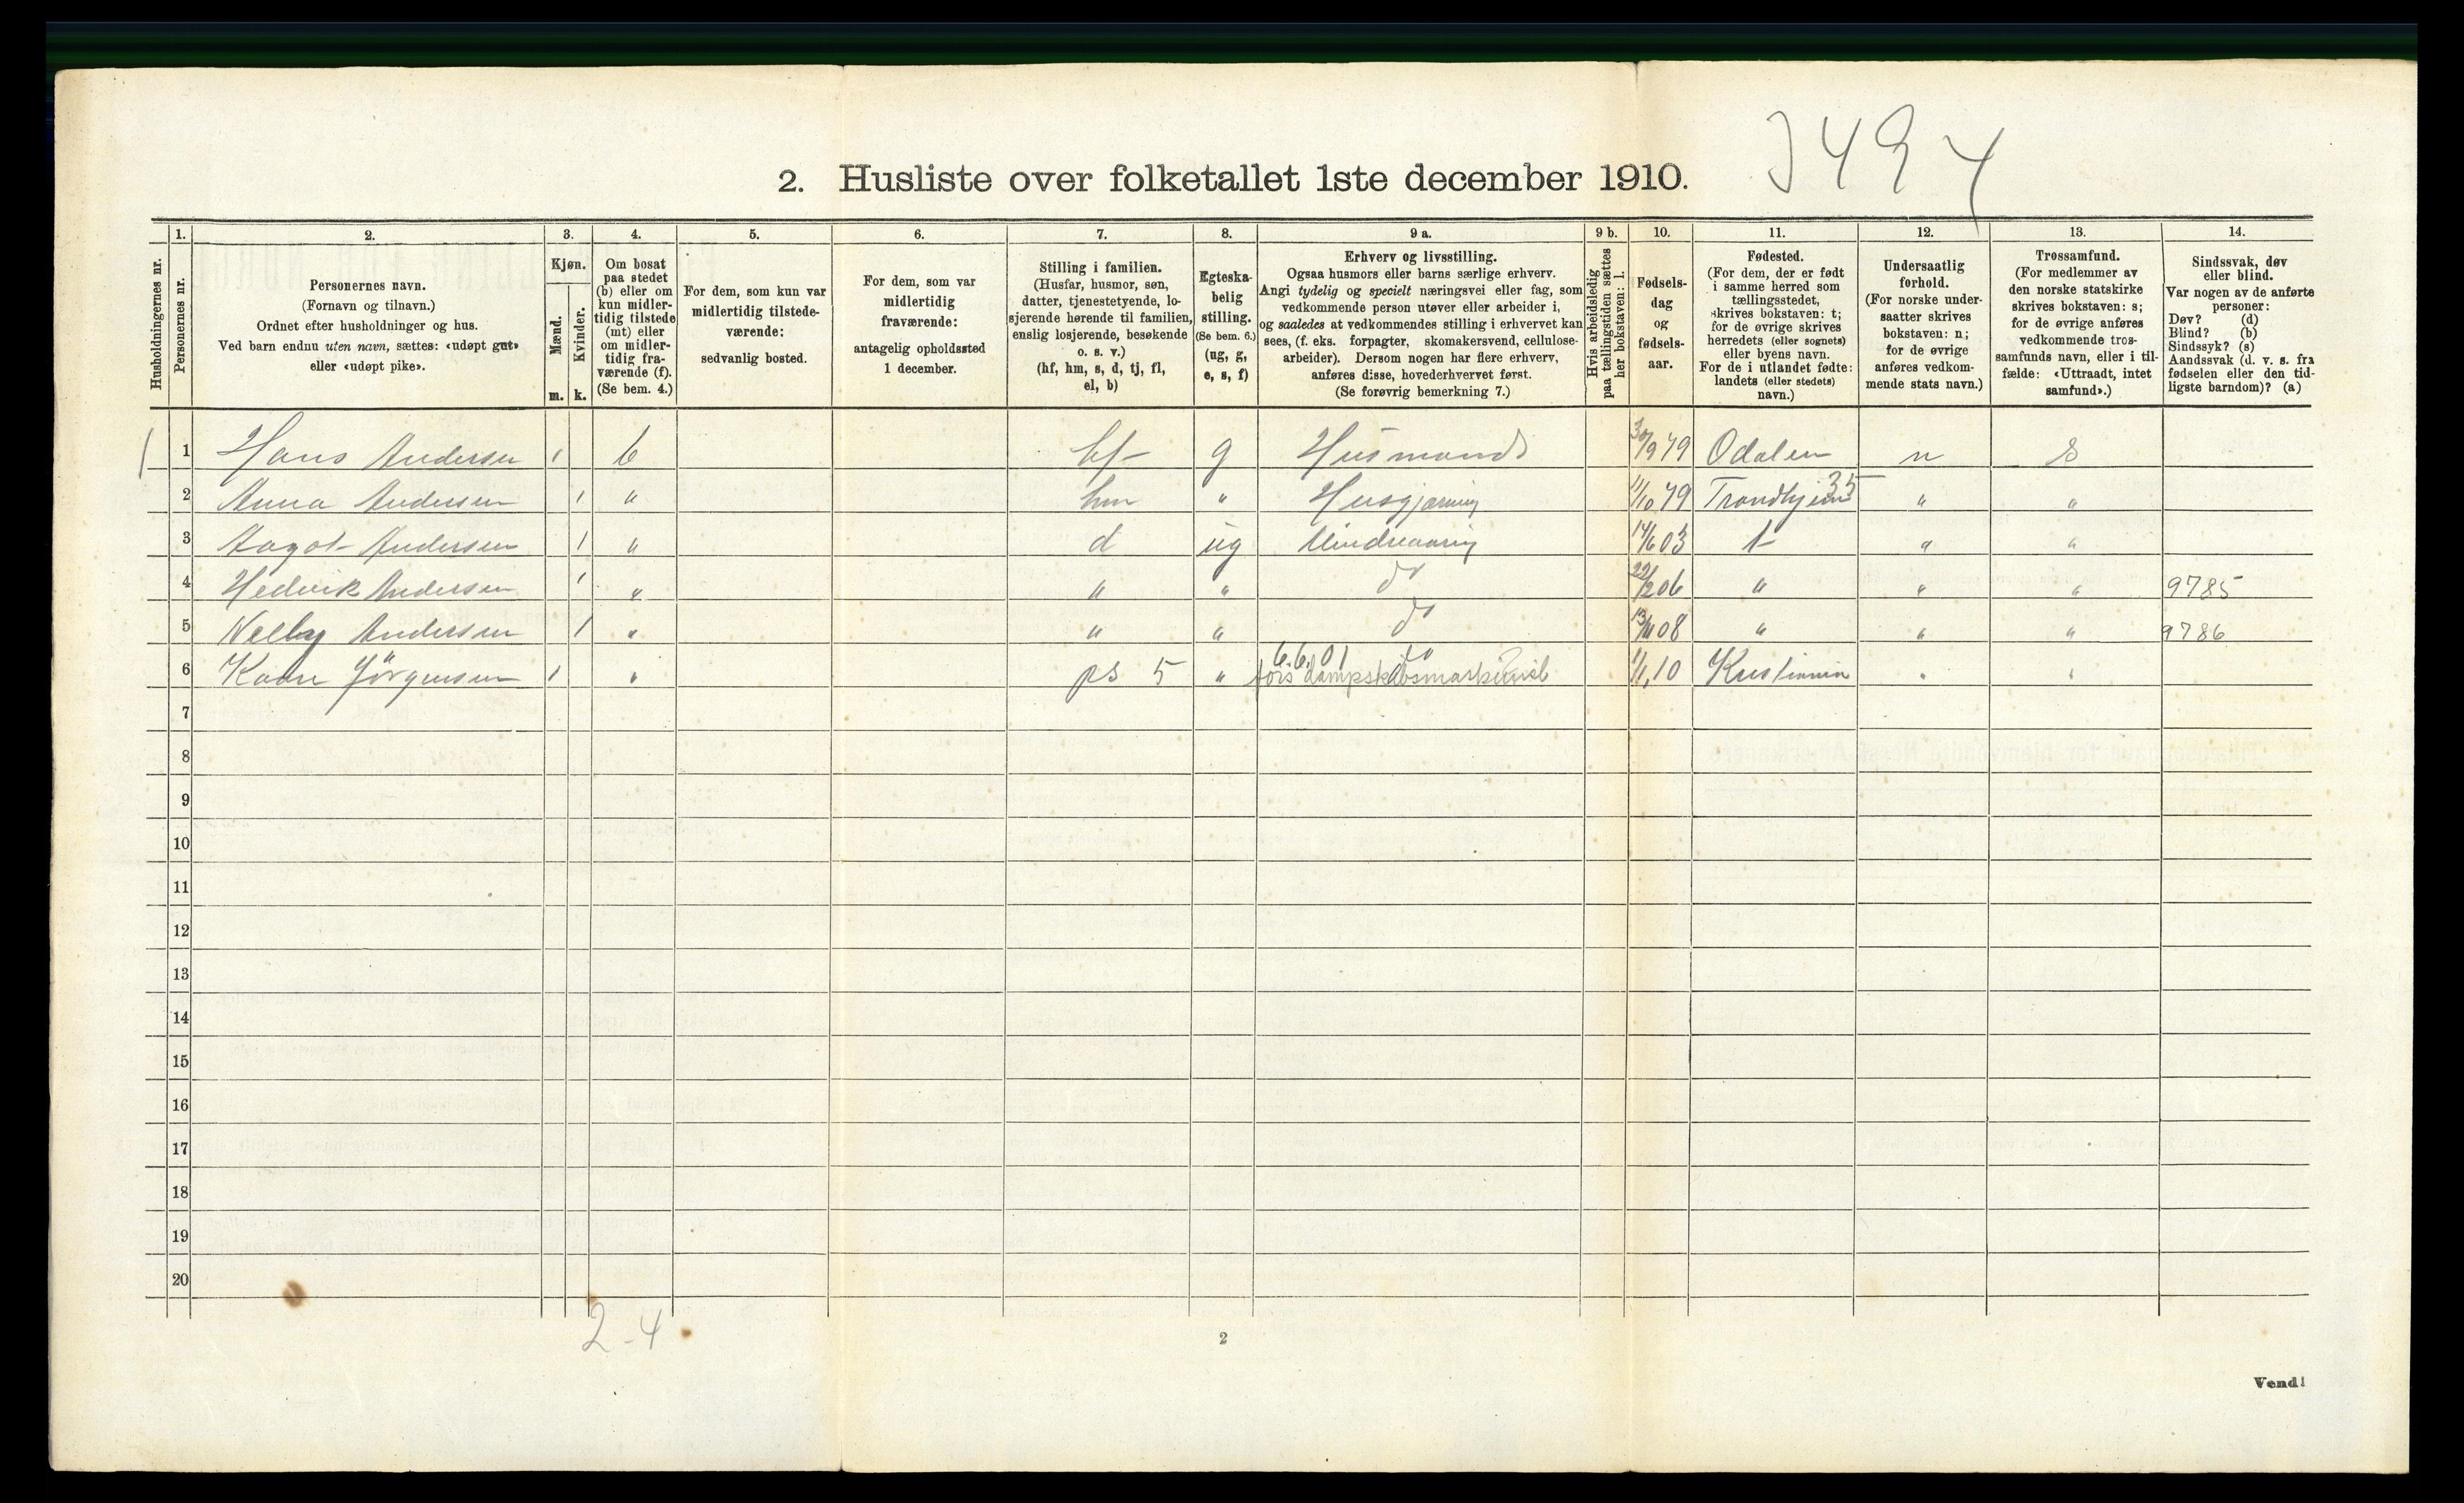 3494
2. Husliste over folketallet 1ste december 1910.
Husholdningernes nr.
1.
Personernes nr.
2.
Personernes navn.
(Fornavn og tilnavn.)
Ordnet efter husholdninger og hus.
Ved barn endnu uten navn, sættes: «udøpt gut»
eller «udøpt pike».
3.
Kjøn.
Mænd.
Kvinder.
m. k.
4.
Om bosat
paa stedet
(b) eller om
kun midler-
tidig tilstede
(mt) eller
om midler-
tidig fra-
værende (f).
(Se bem. 4.)
5.
For dem, som kun var
midlertidig tilstede-
værende:
sedvanlig bosted.
6.
For dem, som var
midlertidig
fraværende:
antagelig opholdssted
1 december.
7.
Stilling i familien.
(Husfar, husmor, søn,
datter, tjenestetyende, lo-
sjerende hørende til familien,
enslig losjerende, besøkende
o. s. v.)
(hf, hm, s, d, tj, fl,
el, b)
8.
Egteska-
belig
stilling.
(Se bem. 6.)
(ug, g,
e, s, f)
9 a.
Erhverv og livsstilling.
Ogsaa husmors eller barns særlige erhverv.
Angi tydelig og specielt næringsvei eller fag, som
vedkommende person utøver eller arbeider i,
og saaledes at vedkommendes stilling i erhvervet kan
sees, (f. eks. forpagter, skomakersvend, cellulose-
arbeider). Dersom nogen har flere erhverv,
anføres disse, hovederhvervet først.
(Se forøvrig bemerkning 7.)
9 b.
Hvis arbeidsledig
paa tællingstiden sættes
her bokstaven: l.
10.
Fødsels-
dag
og
fødsels-
aar.
11.
Fødested.
(For dem, der er født
i samme herred som
tællingsstedet,
skrives bokstaven: t;
for de øvrige skrives
herredets (eller sognets)
eller byens navn.
For de i utlandet fødte:
landets (eller stedets)
navn.)
12.
Undersaatlig
forhold.
(For norske under-
saatter skrives
bokstaven: n;
for de øvrige
anføres vedkom-
mende stats navn.)
13.
Trossamfund.
(For medlemmer av
den norske statskirke
skrives bokstaven: s;
for de øvrige anføres
vedkommende tros-
samfunds navn, eller i til-
fælde: «Uttraadt, intet
samfund».)
14.
Sindssvak, døv
eller blind.
Var nogen av de anførte
personer:
Døv? (d)
Blind? (b)
Sindssyk? (s)
Aandssvak (d. v. s. fra
fødselen eller den tid-
ligste barndom)? (a)
1 1 Hans Andersen 1 b hf g Husmand 30/9 79 Odalen n s
2 Anna Andersen 1 " hm " Husgjærning 11/10 79 Trondhjem 35 " "
3 Aagot Andersen 1 " d ug Mindreaarig 14/6 03 t " "
4 Hedvik Andersen 1 " " " do 22/2 06 " " " 9785
5 Nelly Andersen 1 " " " do 13/11 08 " " " 9786
6 Kaare Jörgensen 1 " ps 5 " 6.6.01 do 1/1 10 Kristiania " "
7
8
9
10
11
12
13
14
15
16
17
18
19
20
2-4
2
Vend!